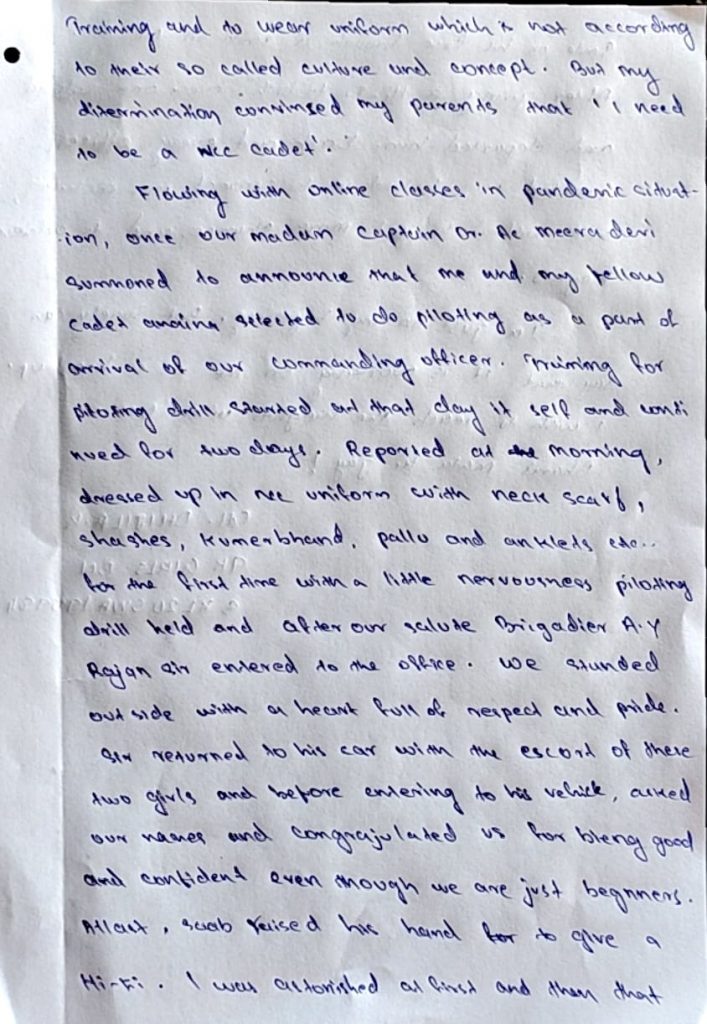 Training and to wear uniform which is not according
to their so called culture and concept. But my
ditermination convinsed my parents that 'I need
to be a NCC cadet'.
Flowing with online classes in pandemic situat-
ion, once our madam Captain Dr. Ac meera devi
summoned to announce that me and my fellow
cadet selected to do piloting as a part of
arrival of our commanding officer. Training for
piloting drill started at that day it self and conti
nued for two days. Reported at the morning,
dressed up in ncc uniform with neck scarf,
shashes, Kumerbhand, pallu and anklets etc..
for the first time with a little nervousness piloting
drill held and after our salute Brigadier A.Y
Rajan sir entered to the office. We standed
out side with a heart full of respect and pride.
Sir returned to his car with the escort of these
two girls and before entering to his vehicle, asked
our names and congrajulated us for bieng good
and confident even though we are just beginners.
Atlast, saab raised his hand for to give a
Hi-Fi. I was astonished at first and then that